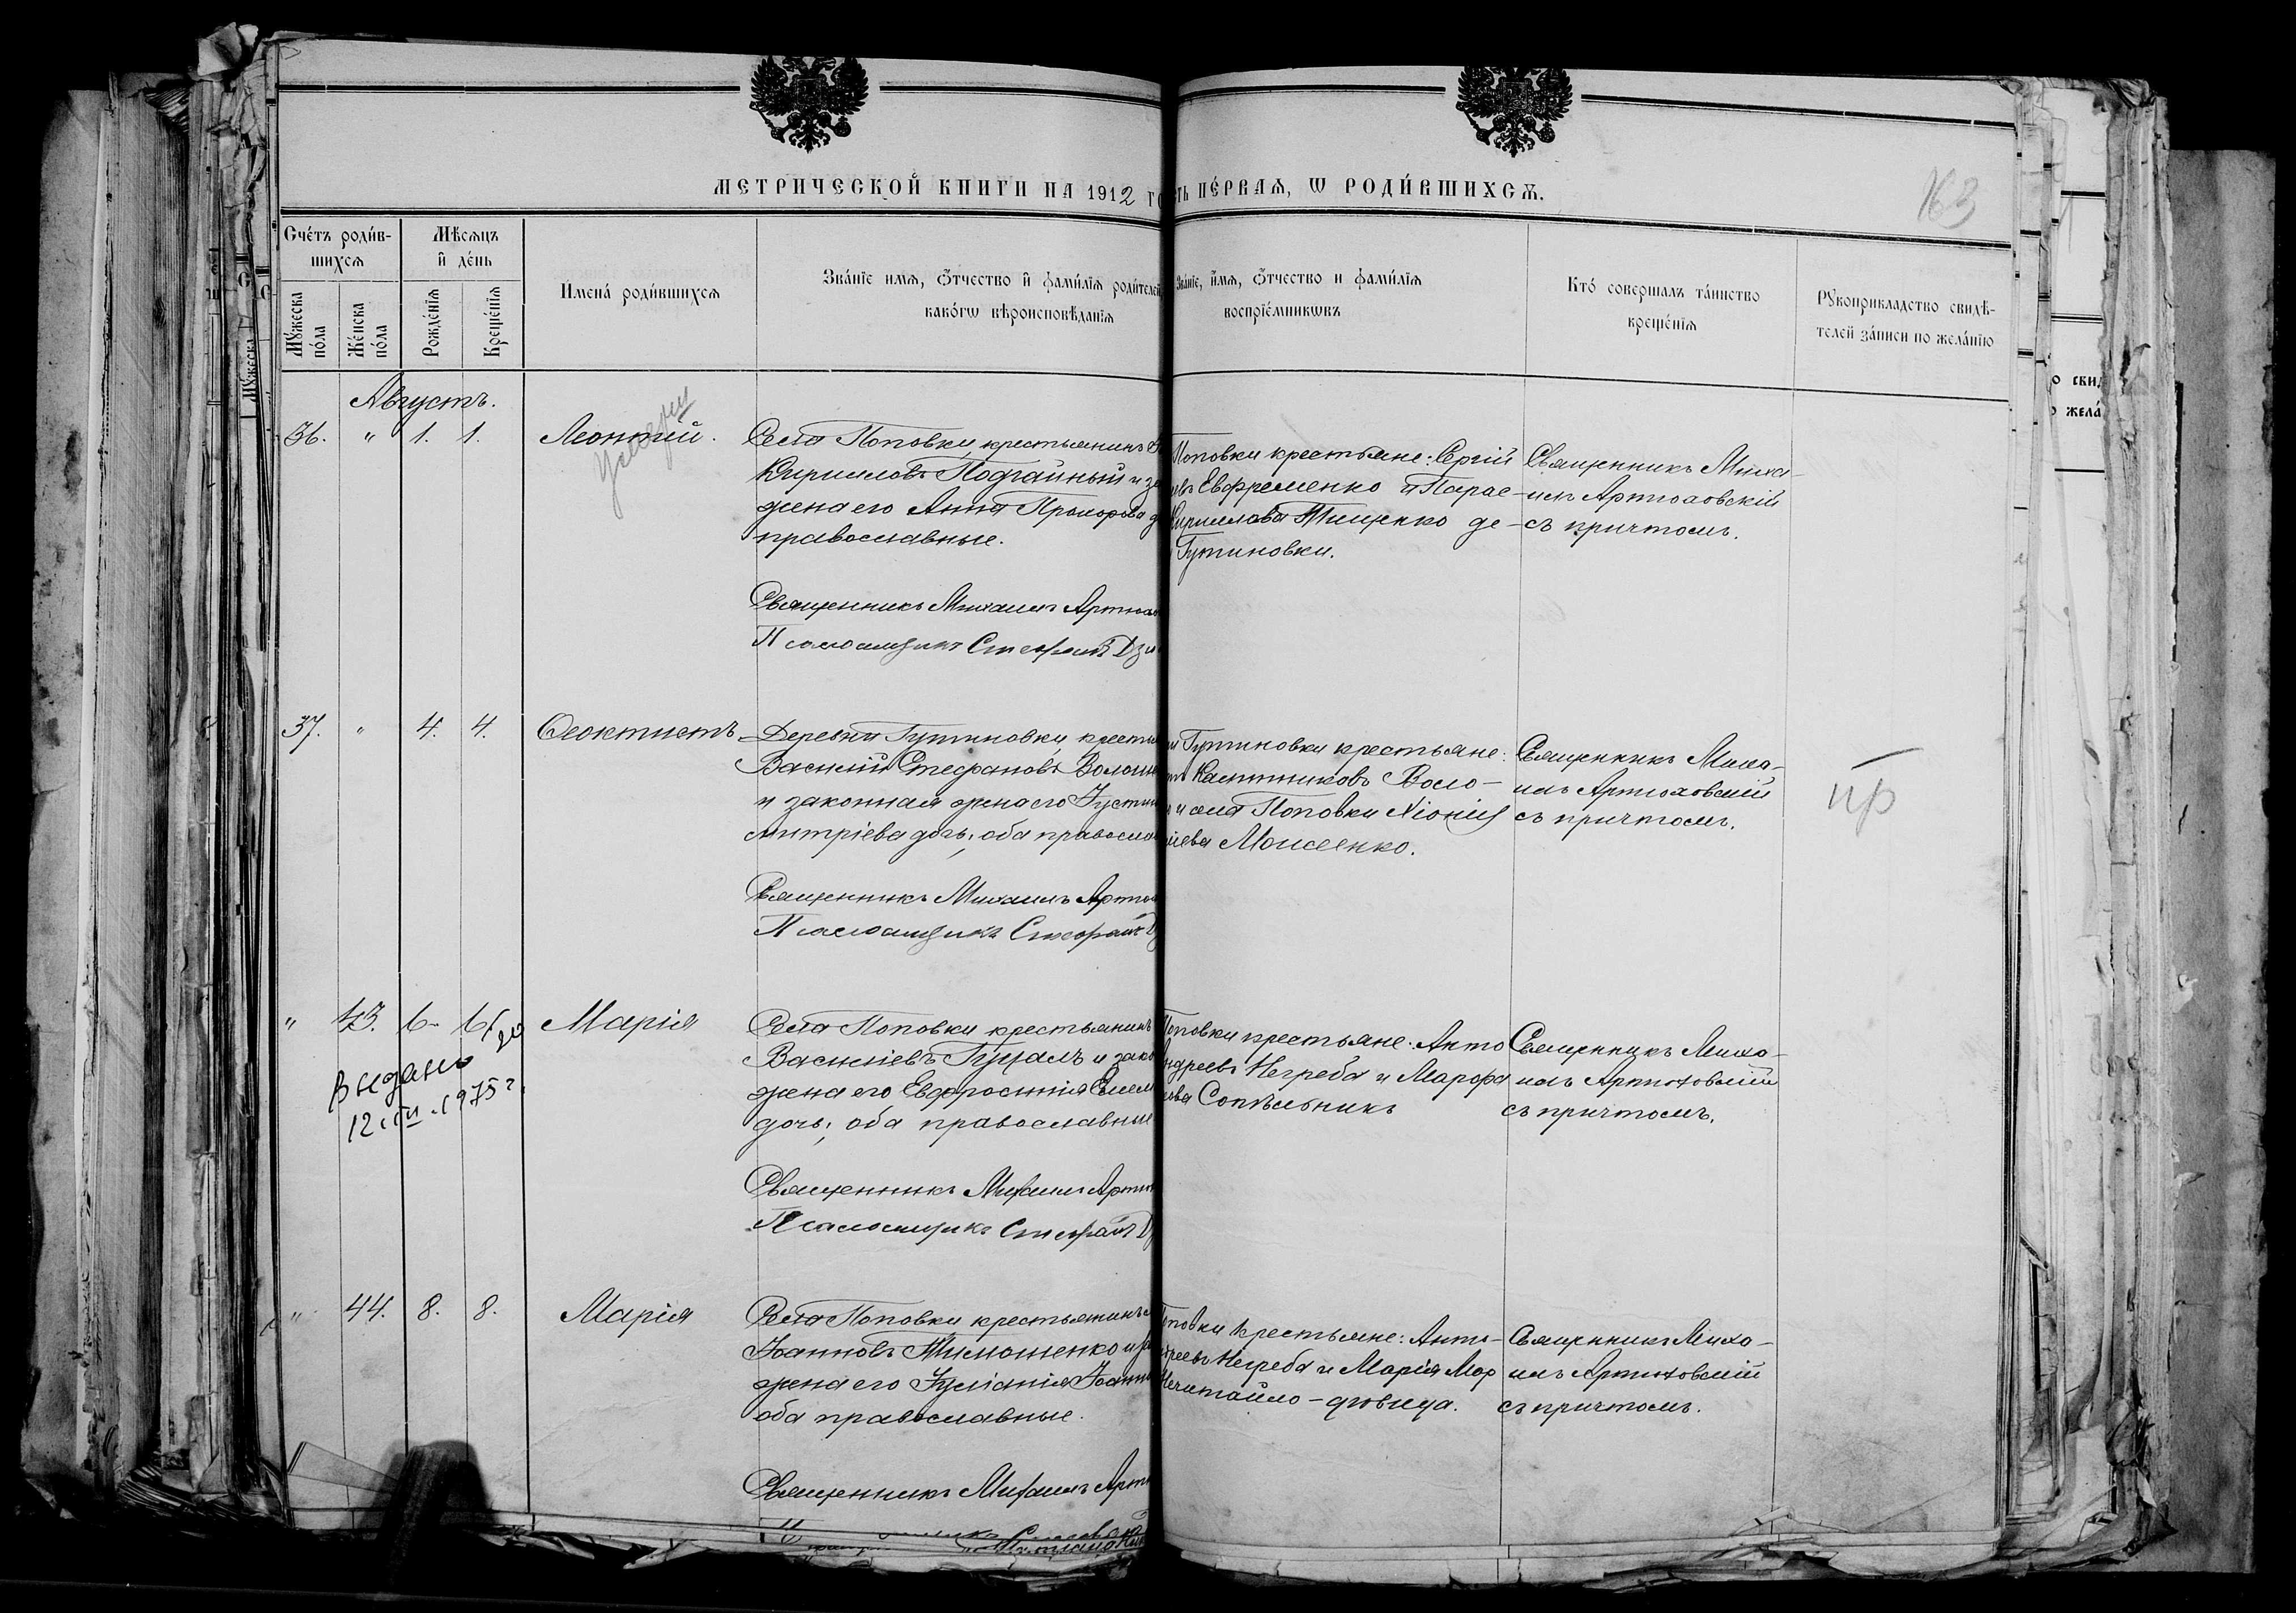 МЕТРИЧЕСКОЙ КНИГИ НА 1912 ГО
СТЬ ПЕ́РВАѦ, Ѡ РОДИ́ВШИХСѦ.
163
Сче́тъ роди́в-
шихсѧ
Мꙋ́жеска по́ла
Же́нска по́ла
Мѣ́сѧцъ
и де́нь
Рожде́нїѧ
Креще́нїѧ
Имена́ роди́вшихсѧ
Зва́нїе имѧ, ѻ́тчество и̂ фами́лїѧ роди́телей
како́гѡ вѣроисповѣ́данїѧ
Зва́нїе, и̂мѧ, ѻ́тчество и фами́лїѧ
воспрїе́мникѡвъ
Кто́ соверша́лъ та́инство
креще́нїѧ
Рꙋкоприкла́дство свидѣ́-
телей за́писи по жела́нїю
Августъ.
36. " 1. 1. Леонтій.
умеръ
Села Поповки, крестьянинъ
Кирилловъ Подгайный и за
жена его Анна Прохорова д
православные.
Священникъ Михаилъ Артюхо
Псаломщикъ Стефанъ Дзю
Поповки крестьяне: Сергій
евъ Евфременко и Парас-
Кириллова Тищенко де-
Гутиновки.
Священникъ Миха-
илъ Артюховскій
съ причтомъ.
37. " 4. 4. Ѳеоктистъ
Деревни Гутиновки, кресть
Василій Стефановъ Волоше
и законная жена его Іустин
митріева дочь; оба правосла
Священникъ Михаилъ Артюх
Псаломщикъ Стефанъ Д
и Гутиновки крестьяне:
Калинниковъ Воло-
и села Поповки Хіонія
іева Моисеенко.
Священникъ Миха-
илъ Артюховскій
съ причтомъ.
пр
" 43. 6. 6. Марія
Выдано
12.III.1975 г.
Села Поповки крестьянинъ
Васильевъ Гуцалъ и зако
жена его Евфросинія Емел
дочь; оба православные
Священникъ Михаилъ Артю
Псаломщикъ Стефанъ Д
Поповки крестьяне: Анто
ндреевъ Негреба и Марфа
ова Сопѣльникъ
Священникъ Миха-
илъ Артюховскій
съ причтомъ.
" 44. 8. 8. Марія
Села Поповки крестьянинъ
Іоанновъ Тимошенко и за
жена его Іуліанія Іоанно
оба православные.
Священникъ Михаилъ Артю
оповки крестьяне: Анто-
реевъ Негреба и Марія Мар
Нечитайло - дѣвица.
Священникъ Миха-
илъ Артюховскій
съ причтомъ.